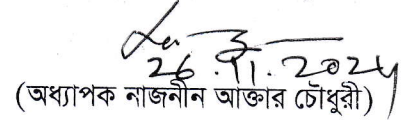 26.11.2024
(অধ্যাপক নাজনীন আক্তার চৌধুরী)